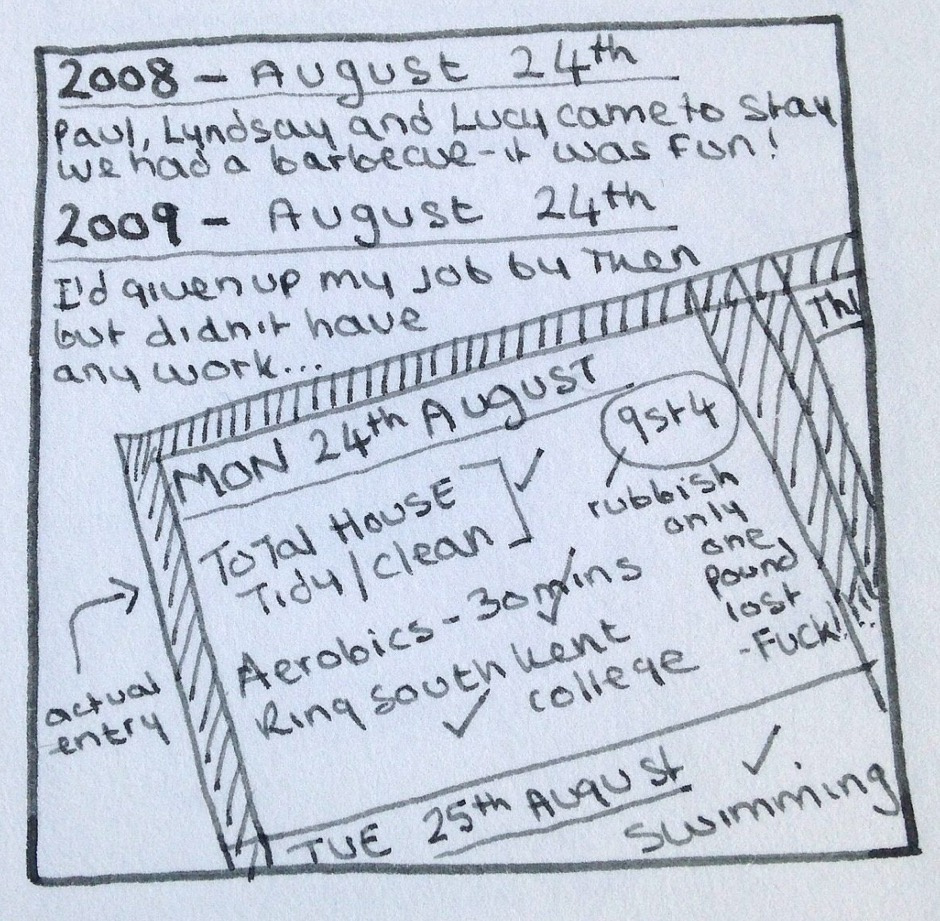 2008 - August 24th
Paul, Lyndsay and Lucy came to stay
we had a barbecue - it was fun!
2009 - August 24th
I'd given up my job by then
but didn't have
any work...
Thu
MON 24th August
9st4
rubbish
only
one
pound
lost
-Fuck!!!
Total House
Tidy/clean
Aerobics - 30 mins
Ring south kent
college
actual
entry
TUE 25th August
swimming